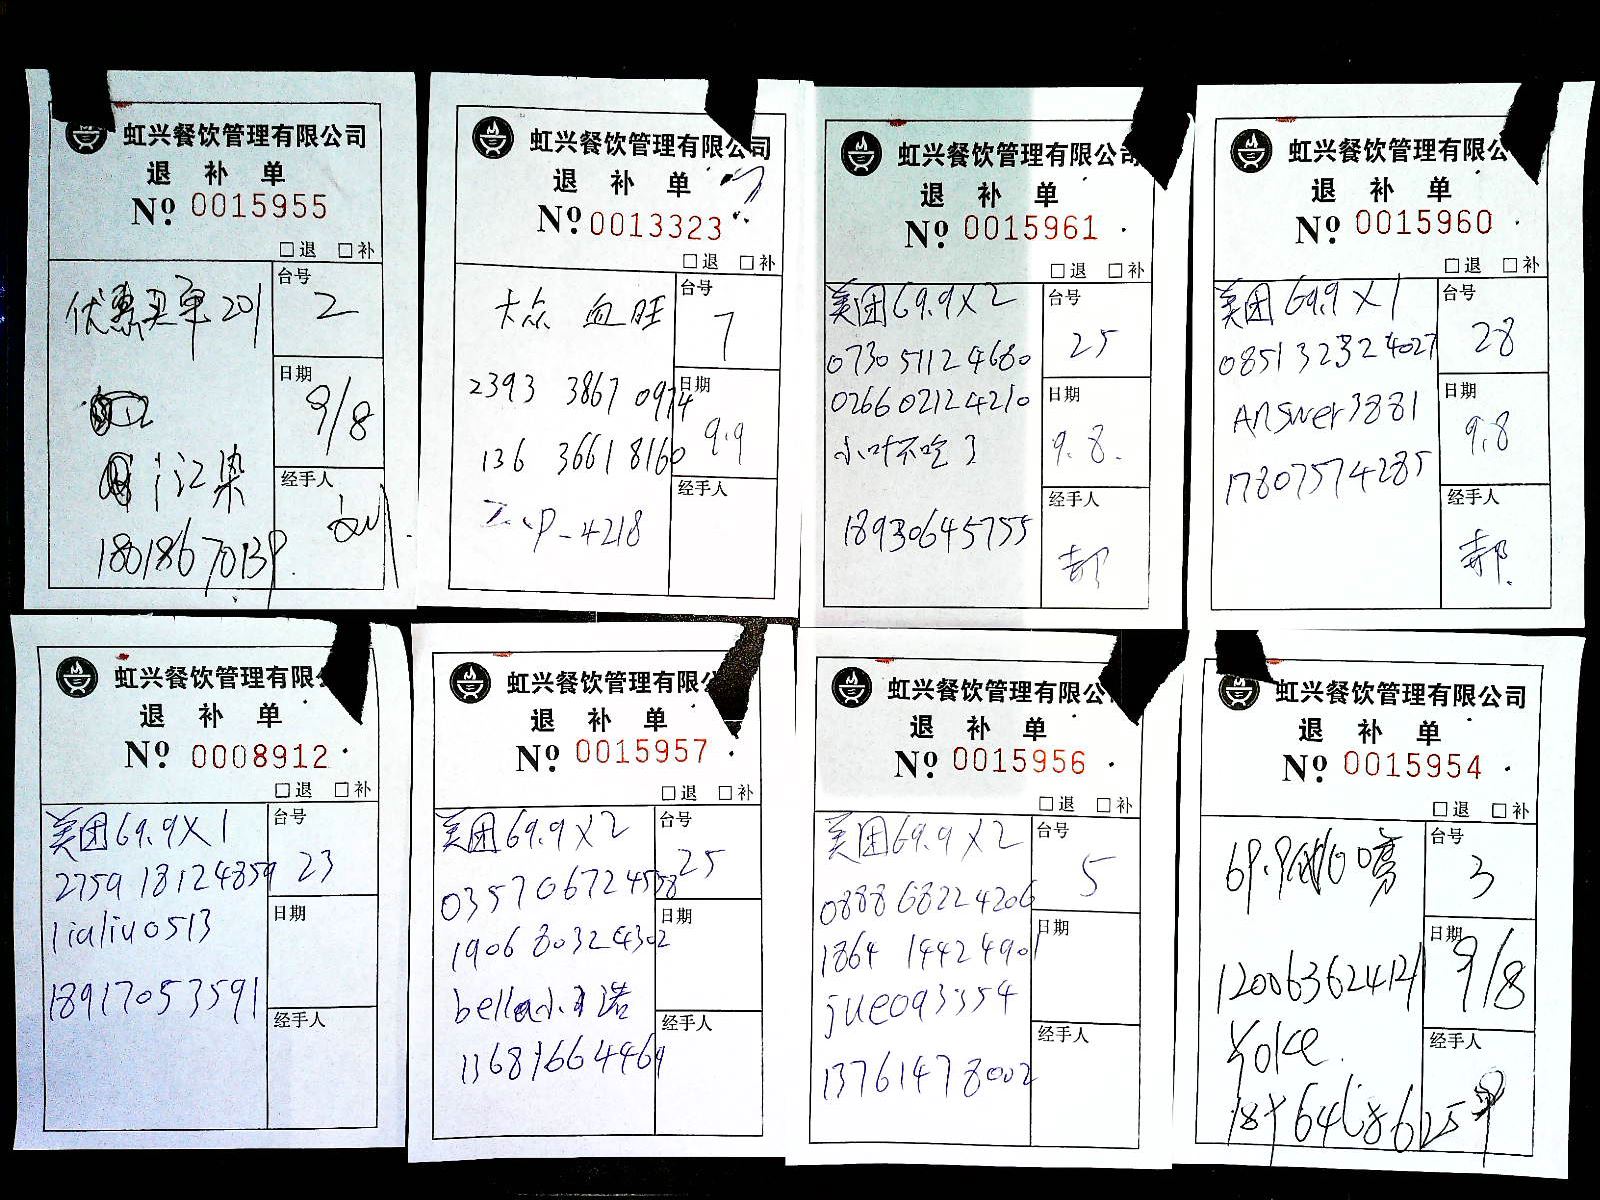 虹兴餐饮管理有限公司
退 补 单
Nº 0015955
□退 □补
优惠买单201
台号
2
日期
9/8
江染
经手人
虹兴餐饮管理有限公司
退 补 单
Nº 0013323
□退 □补
大众 血旺
台号
7
2393 3867 0974
日期
9.9
136 3661 8160
经手人
虹兴餐饮管理有限公司
退 补 单
Nº 0015961
□退 □补
美团69.9X2
台号
25
0730 5112 4660
0266 0212 4210
日期
9.8.
小叶不吃了
经手人
郝
18930645755
虹兴餐饮管理有限公
退 补 单
Nº 0015960
□退 □补
美团69.9X1
台号
28
0851 3232 4027
日期
9.8
Answer3881
17807574285
经手人
郝
虹兴餐饮管理有限
退 补 单
Nº 0008912
□退 □补
美团69.9X1
台号
23
2759 1812 4859
日期
lialiu0513
18917053591
经手人
虹兴餐饮管理有限
退 补 单
Nº 0015957
□退 □补
美团69.9X2
台号
25
0357 0672 4558
日期
1906 8032 4302
经手人
虹兴餐饮管理有限公
退 补 单
Nº 0015956
□退 □补
美团69.9X2
台号
5
0888 6822 4206
日期
1864 1442 4901
jue093354
经手人
13761478002
虹兴餐饮管理有限公司
退 补 单
Nº 0015954
□退 □补
台号
3
日期
9/8
120063624121
Yoke.
经手人